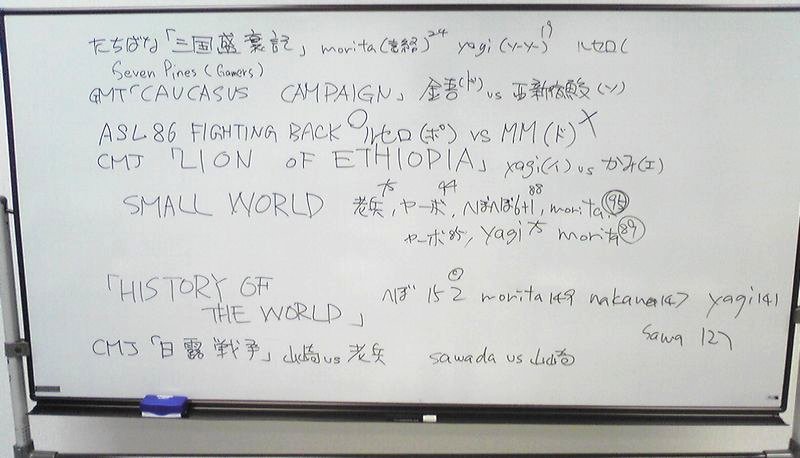 たちばな「三国盛衰記」 morita 24 yagi (ソーソー) 19 ルセロ(
Seven Pines (Gamers)
GMT「CAUCASUS CAMPAIGN」 金吾(ド) vs (ソ)
ASL 86 FIGHTING BACK ○ルセロ(ポ) vs MM(ド)×
CMJ「LION OF ETHIOPIA」 yagi(イ) vs かみ(エ)
SMALL WORLD 老兵, ヤーボ 94, へぼへぼ6+1 88, morita, 95
ヤーボ 85, yagi morita 89
「HISTORY OF へぼ 152 morita 149 nakaware147 yagi 141
THE WORLD」 sawa 127
CMJ「日露戦争」山崎 vs 老兵 sawada vs 山崎